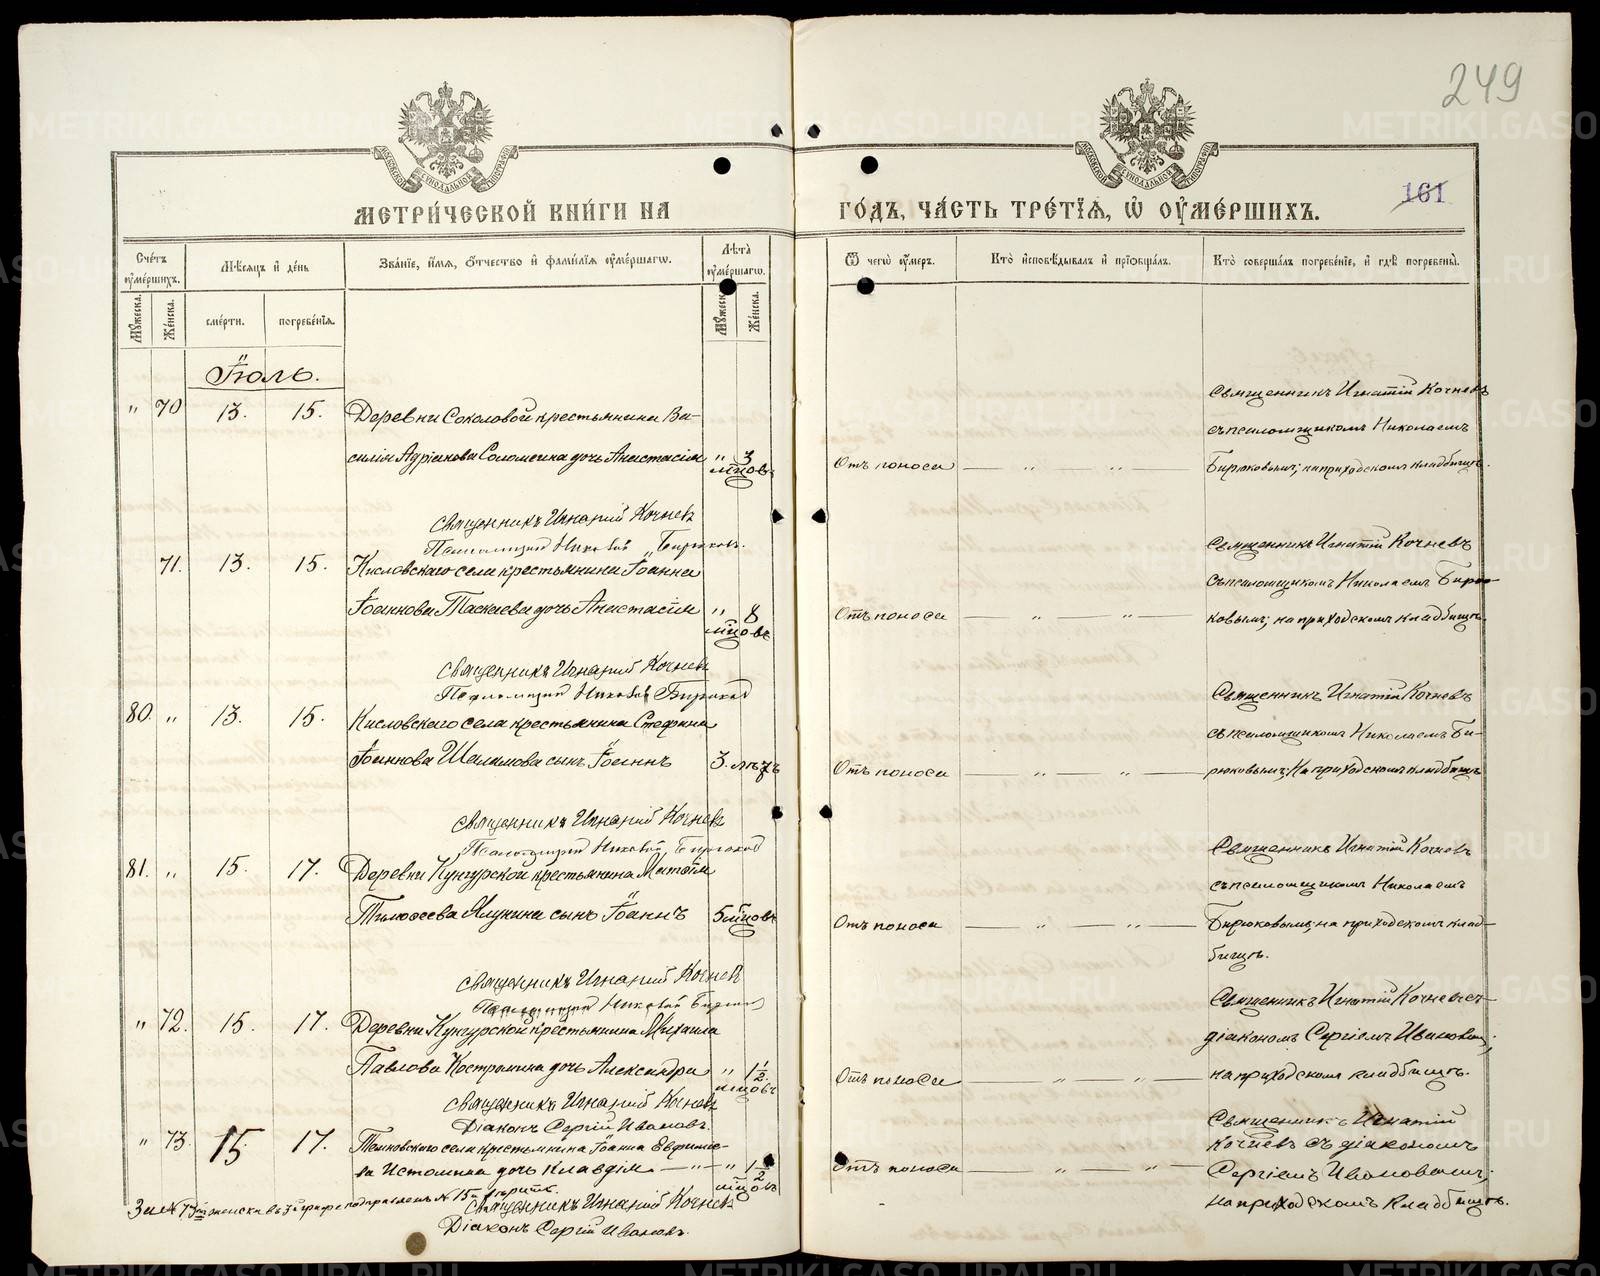 249
161
МОСКОВСКОЙ СУНОДАЛЬНОЙ ТИПОГРАФІИ
МОСКОВСКОЙ СУНОДАЛЬНОЙ ТИПОГРАФІИ
МЕТРИ́ЧЕСКОЙ КНИ́ГИ НА
ГО́ДЪ, ЧА́СТЬ ТРЕ́ТІѦ, Ѽ ОУ҆МЕ́РШИХЪ.
Сче́тъ оу҆ме́ршихъ.
Мѣ́сяцъ и҆ де́нь
Зва́нїе, и҆́мѧ, ѻ҆́тчество и҆ фами́лїѧ оу҆ме́ршагѡ.
Лѣ́та оу҆ме́ршагѡ.
Ѿ чегѡ̀ оу҆́меръ.
Кто̀ и҆сповѣ́дывалъ и҆ прїѡбща́лъ.
Кто̀ соверша́лъ погребе́нїе, и҆ гдѣ̀ погребены̀.
Мꙋ́жеска.
Же́нска.
сме́рти.
погребе́нїѧ.
Мꙋ́жеска.
Же́нска.
Іюль.
" 70 13. 15. Деревни Соколовой крестьянина Ва-
силія Адріанова Соломеина дочь Анастасія " 3 м̃цовъ
Отъ поноса — " — " —
Священникъ Игнатій Кочневъ
съ псаломщикомъ Николаемъ
Бирюковымъ; на приходскомъ кладбищѣ.
Священникъ Игнатій Кочневъ
Псаломщикъ Николай Бирюковъ.
71. 13. 15. Кисловскаго села крестьянина Іоанна
Іоаннова Таскаева дочь Анастасія " 8 м̃цовъ
Отъ поноса — " — " —
Священникъ Игнатій Кочневъ
съ псаломщикомъ Николаемъ Бирю-
ковымъ; на приходскомъ кладбищѣ.
Священникъ Игнатій Кочневъ
Псаломщикъ Николай Бирюковъ
80. " 13. 15. Кисловскаго села крестьянина Стефана
Іоаннова Шаламова сынъ Іоаннъ 3. лѣтъ
Отъ поноса — " — " —
Священникъ Игнатій Кочневъ
съ псаломщикомъ Николаемъ Би-
рюковымъ; На приходскомъ кладбищѣ
Священникъ Игнатій Кочневъ
Псаломщикъ Николай Бирюковъ
81. " 15. 17. Деревни Кунгурской крестьянина Матѳія
Тимоѳеева Ялунина сынъ Іоаннъ 5 м̃цовъ
Отъ поноса — " — " —
Священникъ Игнатій Кочневъ
съ псаломщикомъ Николаемъ
Бирюковымъ; на приходскомъ клад-
бищѣ.
Священникъ Игнатій Кочневъ
Псаломщикъ Николай Бирюковъ
" 72. 15. 17. Деревни Кунгурской крестьянина Михаила
Павлова Костромина дочь Александра " 1 1/2 м̃цовъ
Отъ поноса — " — " —
Священникъ Игнатій Кочневъ съ
діакономъ Сергіемъ Ивановымъ;
на приходскомъ кладбищѣ.
Священникъ Игнатій Кочневъ
Діаконъ Сергій Ивановъ.
" 73. 15 17. Темновскаго села крестьянина Іоанна Евфиміе-
ва Истомина дочь Клавдія — " — " 1 1/2 м̃цовъ
Отъ поноса — " — " —
Священникъ Игнатій
Кочневъ съ діакономъ
Сергіемъ Ивановымъ;
на приходскомъ кладбищѣ.
Священникъ Игнатій Кочневъ
Діаконъ Сергій Ивановъ.